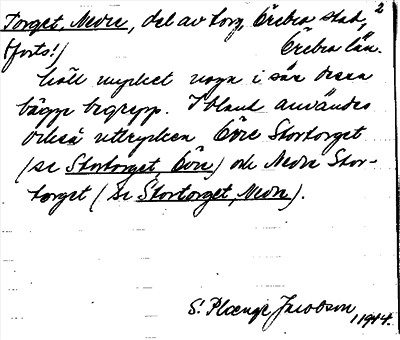 2
Torget, Nedre, del av torg, Örebro stad,
(forts!) Örebro län.
höll mycket noga i sär dessa
bägge begrepp. Ibland användes
också uttrycken Övre Stortorget
(se Stortorget, Övre) och Nedre Stor-
torget (se Stortorget, Nedre).
S: Plœngé Jacobson, 1944.